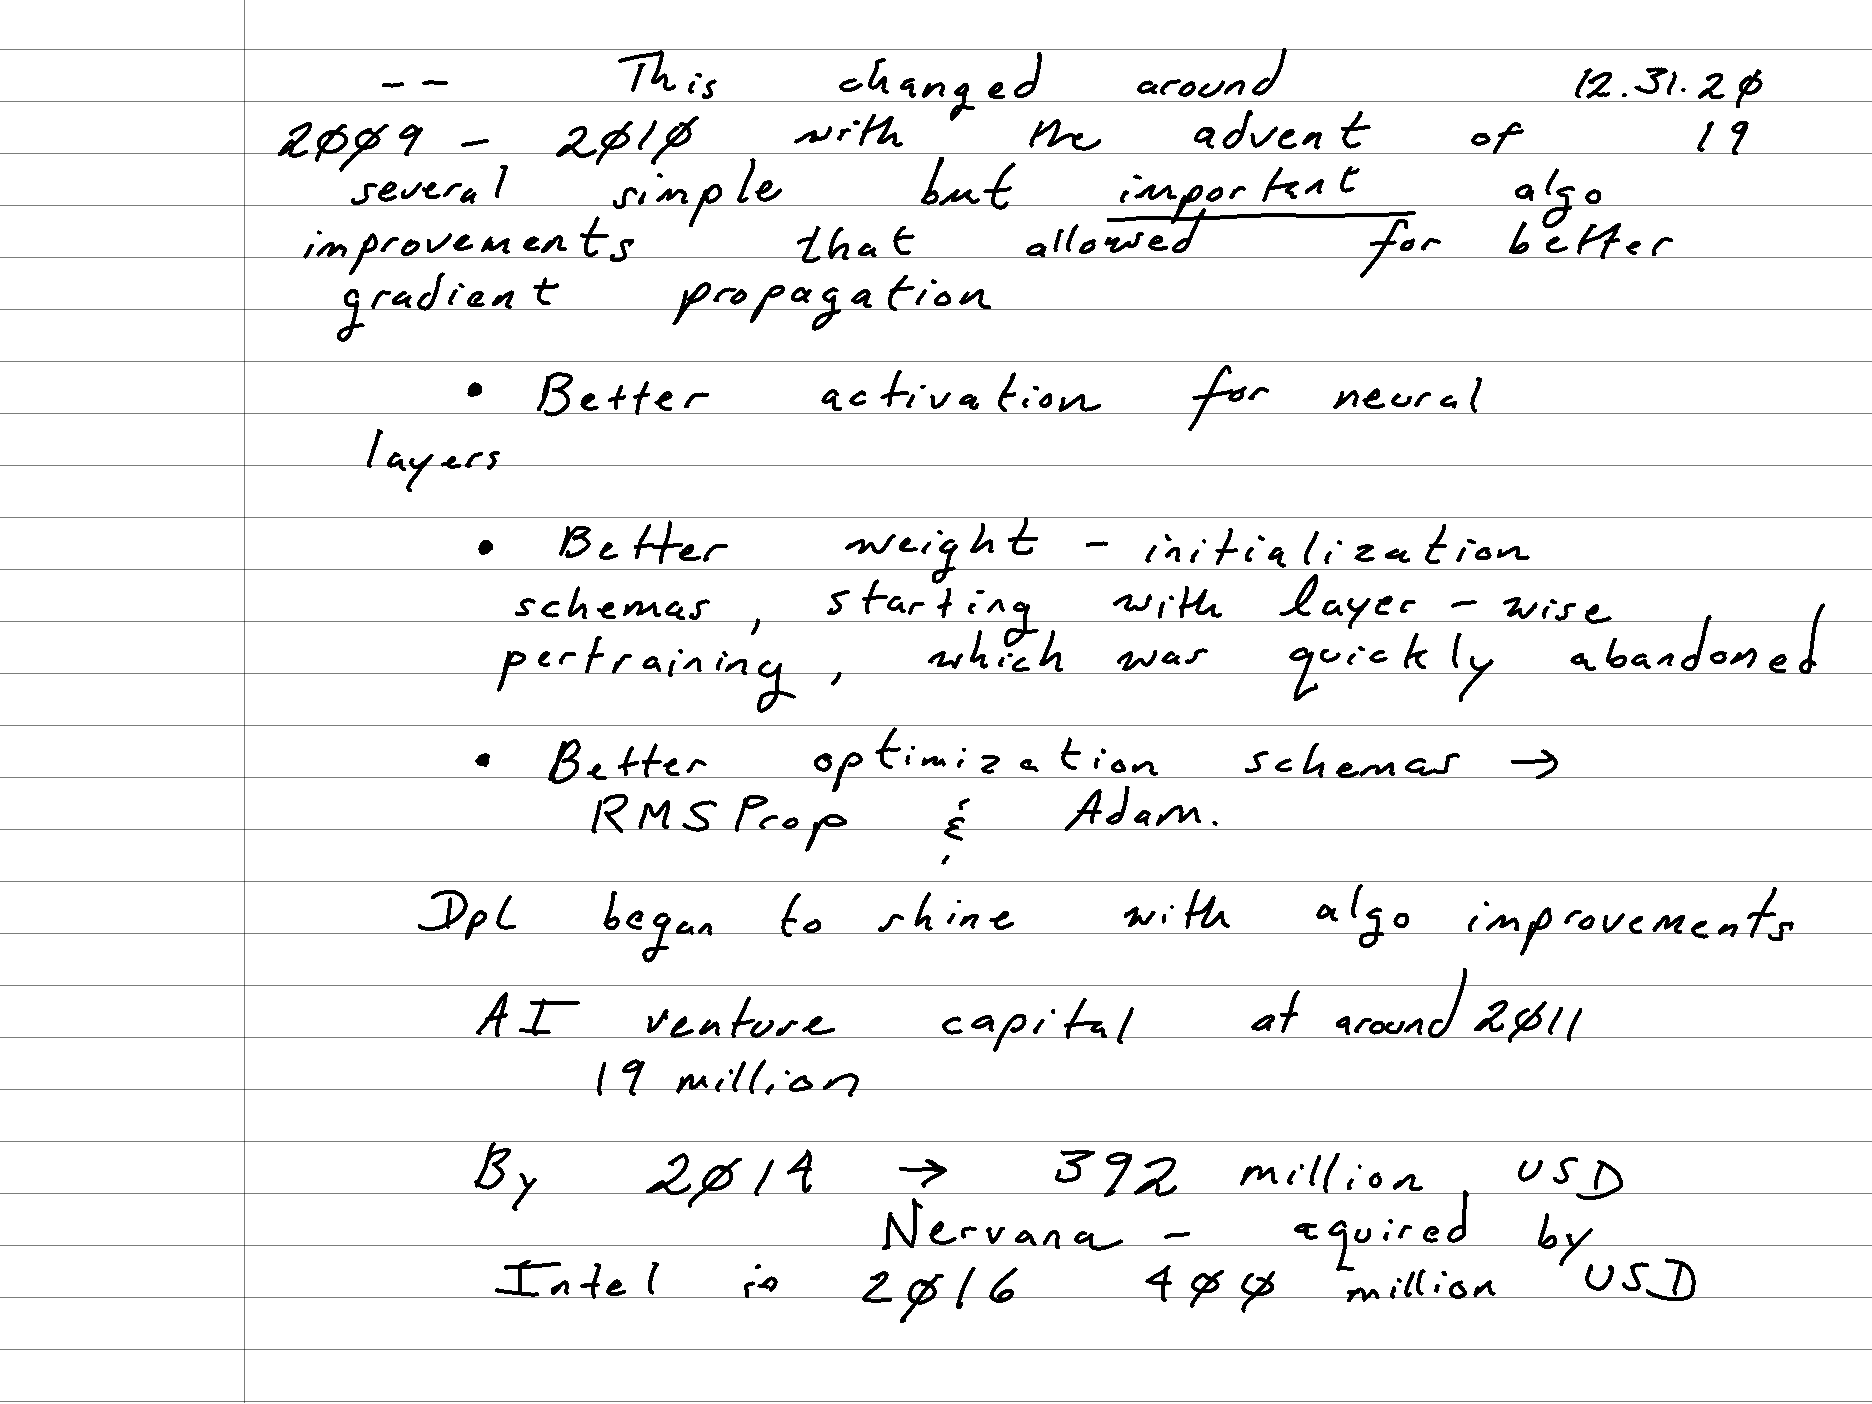 -- This changed around 12.31.20
2009 - 2010 with the advent of 19
several simple but important algo
improvements that allowed for better
gradient propagation
• Better activation for neural
layers
• Better weight - initialization
schemas, starting with layer - wise
pertraining, which was quickly abandoned
• Better optimization schemas →
RMSProp & Adam.
DpL began to shine with algo improvements
AI venture capital at around 2011
19 million
By 2014 → 392 million USD
Nervana - aquired by
Intel in 2016 400 million USD